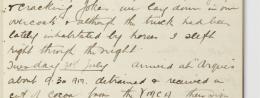 & cracking jokes. we lay down in our
overcoats & although the truck had been
lately inhabited by horses I slept
right through the night.
Tuesday 31st July arrived at Arques
about 9.30 am. detrained & received a
cup of cocoa from the Y.M.C.A.